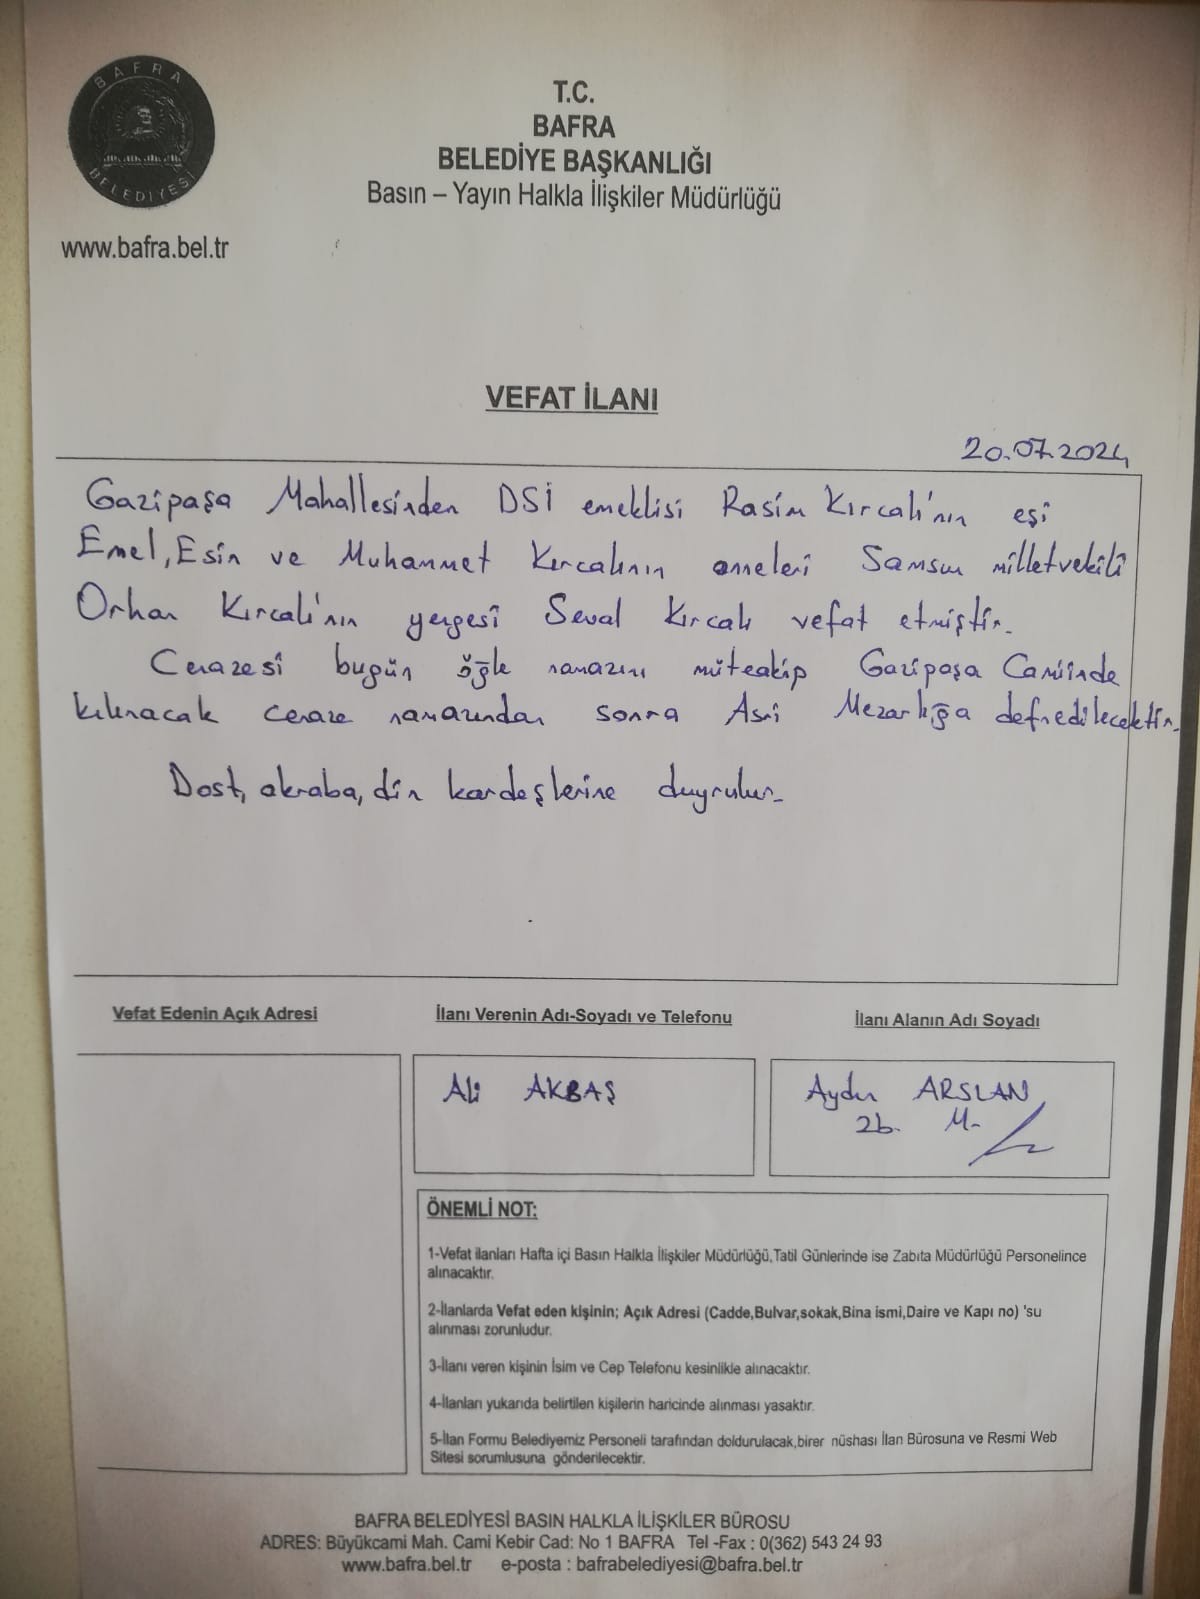 BAFRA
BELEDİYESİ
www.bafra.bel.tr
T.C.
BAFRA
BELEDİYE BAŞKANLIĞI
Basın – Yayın Halkla İlişkiler Müdürlüğü
VEFAT İLANI
20.07.2024
Gazipaşa Mahallesinden DSİ emeklisi Rasim Kırcalı'nın eşi
Emel, Esin ve Muhammet Kırcalının anneleri Samsun milletvekili
Orhan Kırcalı'nın yengesi Seval Kırcalı vefat etmiştir.
Cenazesi bugün öğle namazını müteakip Gazipaşa Camiinde
kılınacak cenaze namazından sonra Asri Mezarlığa defnedilecektir.
Dost, akraba, din kardeşlerine duyrulur.
Vefat Edenin Açık Adresi
İlanı Verenin Adı-Soyadı ve Telefonu
İlanı Alanın Adı Soyadı
Ali AKBAŞ
Aydın ARSLAN
Zb. M.
ÖNEMLİ NOT:
1-Vefat ilanları Hafta içi Basın Halkla İlişkiler Müdürlüğü,Tatil Günlerinde ise Zabıta Müdürlüğü Personelince
alınacaktır.
2-İlanlarda Vefat eden kişinin; Açık Adresi (Cadde,Bulvar,sokak,Bina ismi,Daire ve Kapı no) 'su
alınması zorunludur.
3-İlanı veren kişinin İsim ve Cep Telefonu kesinlikle alınacaktır.
4-İlanları yukarıda belirtilen kişilerin haricinde alınması yasaktır.
5-İlan Formu Belediyemiz Personeli tarafından doldurulacak,birer nüshası İlan Bürosuna ve Resmi Web
Sitesi sorumlusuna gönderilecektir.
BAFRA BELEDİYESİ BASIN HALKLA İLİŞKİLER BÜROSU
ADRES: Büyükcami Mah. Cami Kebir Cad: No 1 BAFRA Tel -Fax : 0(362) 543 24 93
www.bafra.bel.tr e-posta : bafrabelediyesi@bafra.bel.tr